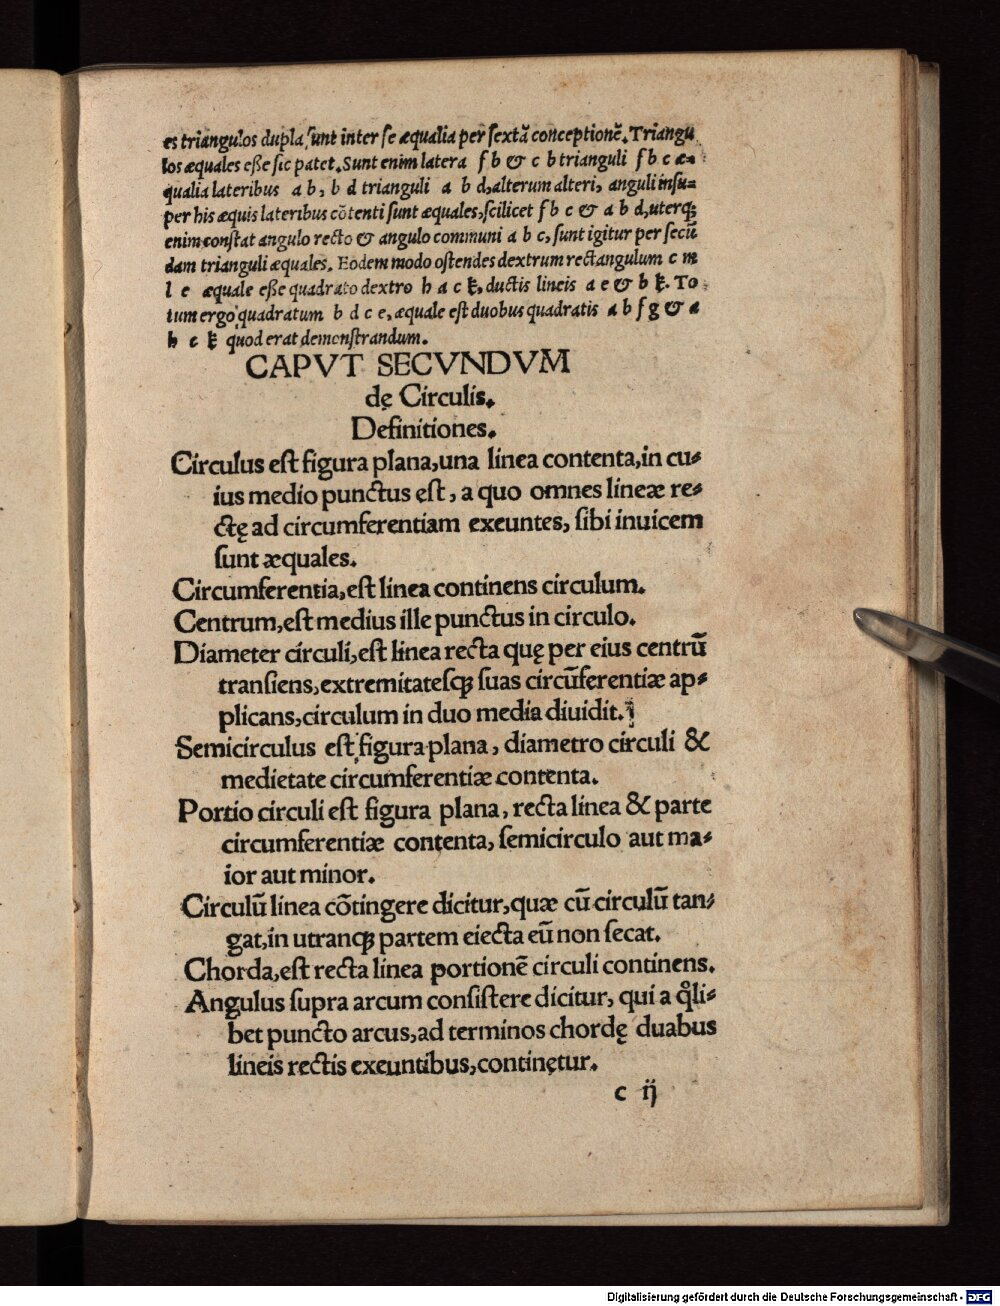 es triangulos dupla, sunt inter se æqualia per sextā conceptionē. Triangu
los æquales eße sic patet. Sunt enim latera f b & c b trianguli f b c æ-
qualia lateribus a b, b d trianguli a b d, alterum alteri, anguli insu=
per his æquis lateribus cōtenti sunt æquales, scilicet f b c & a b d, uterqꝫ
enim constat angulo recto & angulo communi a b c, sunt igitur per secū
dam trianguli æquales. Eodem modo ostendes dextrum rectangulum c m
l e æquale eße quadrato dextro h a c k, ductis lineis a e & b k. To
tum ergo quadratum b d c e, æquale est duobus quadratis a b f g & a
h c k quod erat demonstrandum.
CAPVT SECVNDVM
dę Circulis.
Definitiones.
Circulus est figura plana, una linea contenta, in cu-
ius medio punctus est, a quo omnes lineæ re-
ctę ad circumferentiam exeuntes, sibi inuicem
sunt æquales.
Circumferentia, est linea continens circulum.
Centrum, est medius ille punctus in circulo.
Diameter circuli, est linea recta quę per eius centrū
transiens, extremitatesqꝫ suas circūferentiæ ap-
plicans, circulum in duo media diuidit.
Semicirculus est figura plana, diametro circuli &
medietate circumferentiæ contenta.
Portio circuli est figura plana, recta linea & parte
circumferentiæ contenta, semicirculo aut ma-
ior aut minor.
Circulū linea cōtingere dicitur, quæ cū circulū tan-
gat, in utranqꝫ partem eiecta eū non secat.
Chorda, est recta linea portionē circuli continens.
Angulus supra arcum consistere dicitur, qui a qͦli-
bet puncto arcus, ad terminos chordę duabus
lineis rectis exeuntibus, continętur.
c ij
Digitalisierung gefördert durch die Deutsche Forschungsgemeinschaft - DFG